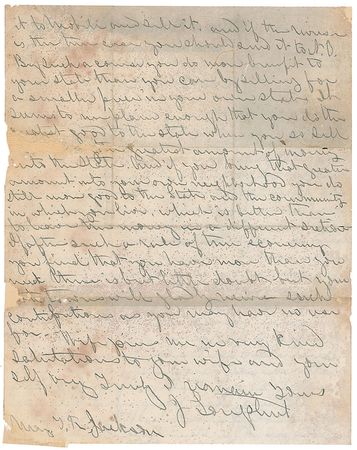 it to Mobile and sell it. and if the worse
is the true case you should send it to N.O.
By such a course you do more benefit to
your state than you can by selling for
a smaller price in your own state. It
seems to me plain enough that you do the
greatest good to the state when you so sell
greatest amount of money
into the State. and if you bring that greater
amount into your own neighborhood you do
still more good to the State and the community
in which you live, which is better than
to leave the money in a different section
If after such a rule of this
you find that you have more than you
need, there is but little doubt but you
will find
as you may have no use
for. Join me in very kind
salutations to your wife and your
self very Truly I remain Yours
J
Mrs J. R. Jackson